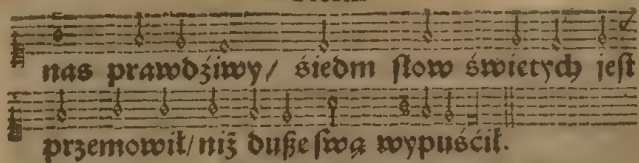 nas prawdźiwy/ śiedm słow świetych jest
przemowił/ niż duße swą wypuśćił.